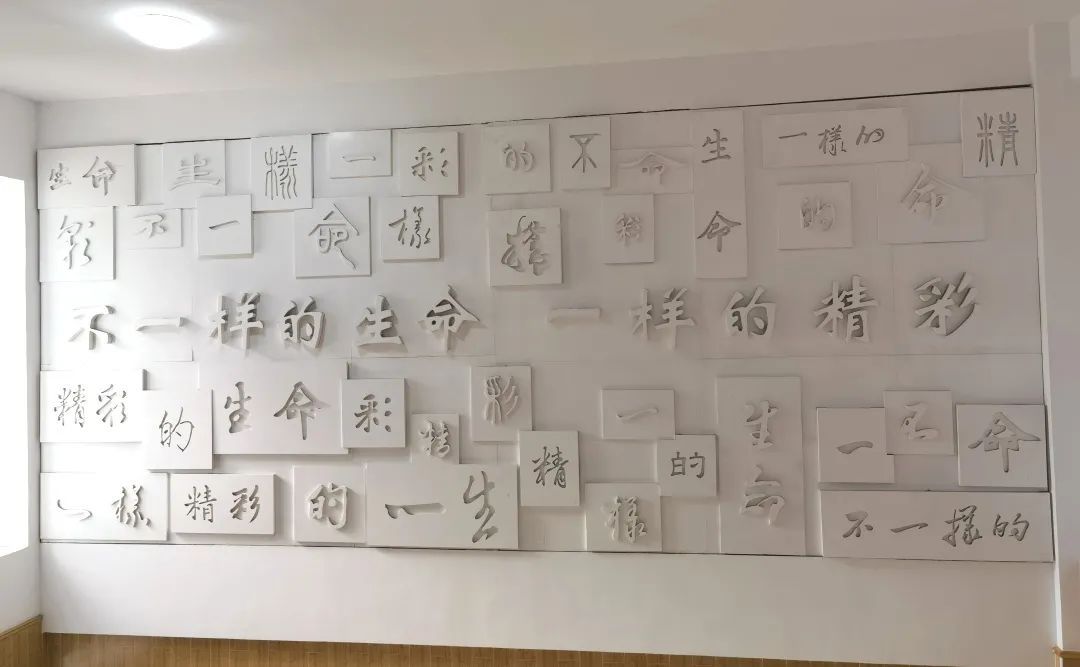 生命 生 樣 一 彩 的 不 命 生命 一樣的 精
彩 不 一 命 樣 樣 精 的 命
不一样的生命 一样的精彩
精彩 的 生命 彩 精 彩 一 的 生命 一 不 命
一樣 精彩 的 一生 精 樣 不一樣的